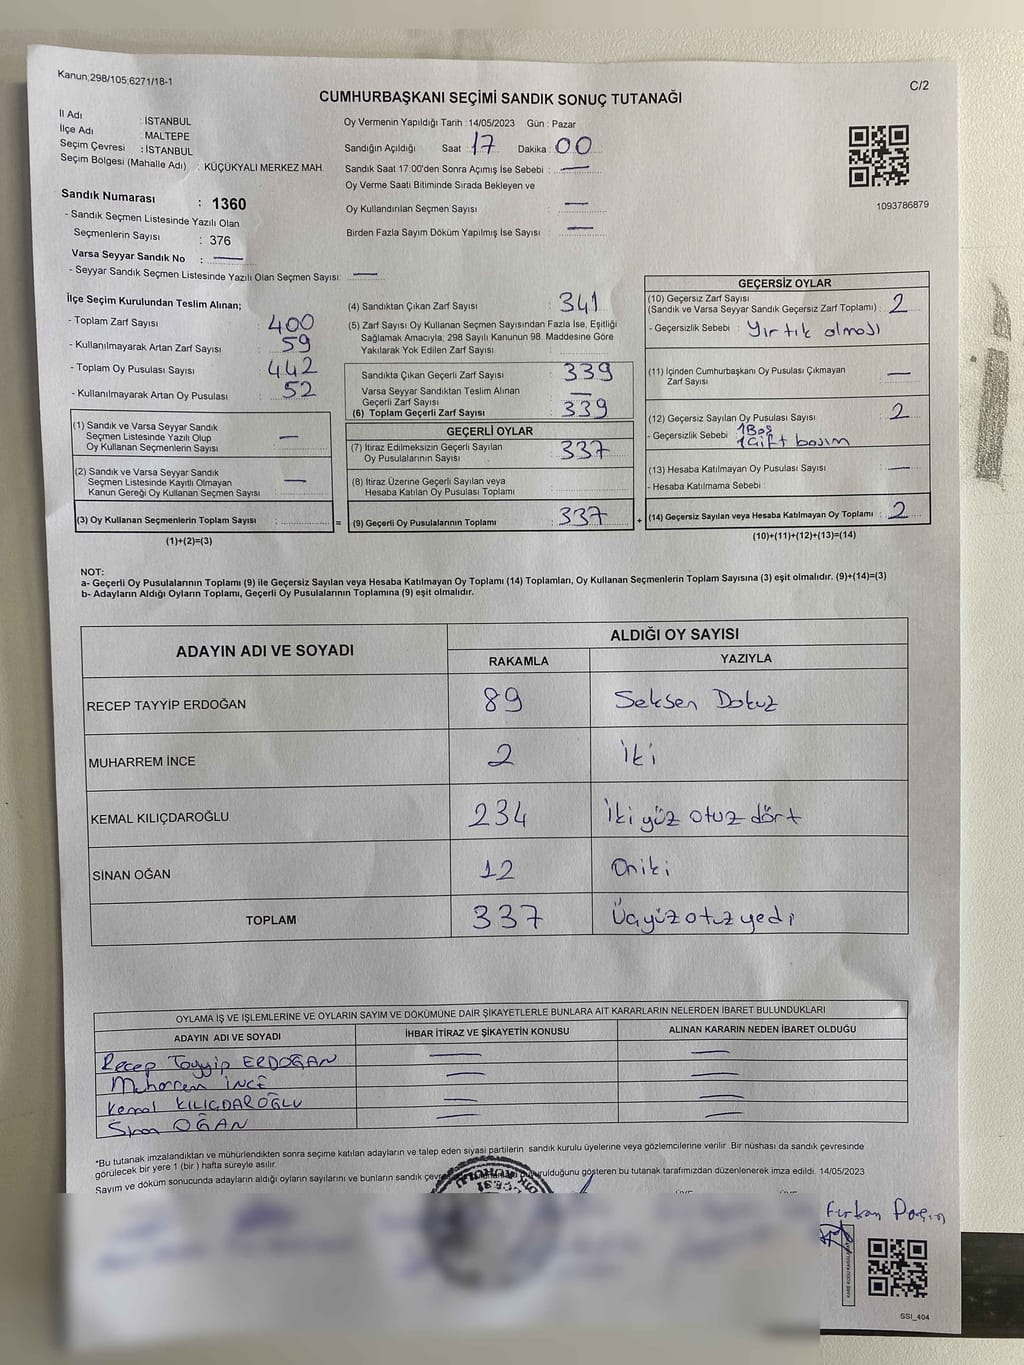 Kanun:298/105,6271/18-1
C/2
CUMHURBAŞKANI SEÇİMİ SANDIK SONUÇ TUTANAĞI
İl Adı : İSTANBUL
İlçe Adı : MALTEPE
Seçim Çevresi : İSTANBUL
Seçim Bölgesi (Mahalle Adı) : KÜÇÜKYALI MERKEZ MAH.
Sandık Numarası : 1360
- Sandık Seçmen Listesinde Yazılı Olan
Seçmenlerin Sayısı : 376
Varsa Seyyar Sandık No : —
- Seyyar Sandık Seçmen Listesinde Yazılı Olan Seçmen Sayısı: —
Oy Vermenin Yapıldığı Tarih : 14/05/2023 Gün : Pazar
Sandığın Açıldığı Saat : 17 Dakika : 00
Sandık Saat 17:00'den Sonra Açımış İse Sebebi : —
Oy Verme Saati Bitiminde Sırada Bekleyen ve
Oy Kullandırılan Seçmen Sayısı : —
Birden Fazla Sayım Döküm Yapılmış İse Sayısı : —
1093786879
İlçe Seçim Kurulundan Teslim Alınan;
- Toplam Zarf Sayısı : 400
- Kullanılmayarak Artan Zarf Sayısı : 59
- Toplam Oy Pusulası Sayısı : 442
- Kullanılmayarak Artan Oy Pusulası : 52
(1) Sandık ve Varsa Seyyar Sandık
Seçmen Listesinde Yazılı Olup
Oy Kullanan Seçmenlerin Sayısı : —
(2) Sandık ve Varsa Seyyar Sandık
Seçmen Listesinde Kayıtlı Olmayan
Kanun Gereği Oy Kullanan Seçmen Sayısı : —
(3) Oy Kullanan Seçmenlerin Toplam Sayısı :
(1)+(2)=(3)
(4) Sandıktan Çıkan Zarf Sayısı : 341
(5) Zarf Sayısı Oy Kullanan Seçmen Sayısından Fazla İse, Eşitliği
Sağlamak Amacıyla; 298 Sayılı Kanunun 98. Maddesine Göre
Yakılarak Yok Edilen Zarf Sayısı :
Sandıkta Çıkan Geçerli Zarf Sayısı : 339
Varsa Seyyar Sandıktan Teslim Alınan
Geçerli Zarf Sayısı : —
(6) Toplam Geçerli Zarf Sayısı : 339
GEÇERLİ OYLAR
(7) İtiraz Edilmeksizin Geçerli Sayılan
Oy Pusulalarının Sayısı : 337
(8) İtiraz Üzerine Geçerli Sayılan veya
Hesaba Katılan Oy Pusulası Toplamı :
= (9) Geçerli Oy Pusulalarının Toplamı : 337 +
GEÇERSİZ OYLAR
(10) Geçersiz Zarf Sayısı
(Sandık ve Varsa Seyyar Sandık Geçersiz Zarf Toplamı) : 2
- Geçersizlik Sebebi : Yırtık olması
(11) İçinden Cumhurbaşkanı Oy Pusulası Çıkmayan
Zarf Sayısı : —
(12) Geçersiz Sayılan Oy Pusulası Sayısı : 2
- Geçersizlik Sebebi : 1 Boş
1 Çift basım
(13) Hesaba Katılmayan Oy Pusulası Sayısı : —
- Hesaba Katılmama Sebebi :
(14) Geçersiz Sayılan veya Hesaba Katılmayan Oy Toplamı : 2
(10)+(11)+(12)+(13)=(14)
NOT:
a- Geçerli Oy Pusulalarının Toplamı (9) ile Geçersiz Sayılan veya Hesaba Katılmayan Oy Toplamı (14) Toplamları, Oy Kullanan Seçmenlerin Toplam Sayısına (3) eşit olmalıdır. (9)+(14)=(3)
b- Adayların Aldığı Oyların Toplamı, Geçerli Oy Pusulalarının Toplamına (9) eşit olmalıdır.
ADAYIN ADI VE SOYADI ALDIĞI OY SAYISI
RAKAMLA YAZIYLA
RECEP TAYYİP ERDOĞAN 89 Seksen Dokuz
MUHARREM İNCE 2 İki
KEMAL KILIÇDAROĞLU 234 İki yüz otuz dört
SİNAN OĞAN 12 Oniki
TOPLAM 337 Üçyüzotuzyedi
OYLAMA İŞ VE İŞLEMLERİNE VE OYLARIN SAYIM VE DÖKÜMÜNE DAİR ŞİKAYETLERLE BUNLARA AİT KARARLARIN NELERDEN İBARET BULUNDUKLARI
ADAYIN ADI VE SOYADI İHBAR İTİRAZ VE ŞİKAYETİN KONUSU ALINAN KARARIN NEDEN İBARET OLDUĞU
Recep Tayyip ERDOĞAN — —
Muharrem İNCE — —
Kemal KILIÇDAROĞLU — —
Sinan OĞAN — —
*Bu tutanak imzalandıktan ve mühürlendikten sonra seçime katılan adayların ve talep eden siyasi partilerin sandık kurulu üyelerine veya gözlemcilerine verilir. Bir nüshası da sandık çevresinde
görülecek bir yere 1 (bir) hafta süreyle asılır.
Sayım ve döküm sonucunda adayların aldığı oyların sayılarını ve bunların sandık gösteren bu tutanak tarafımızdan düzenlenerek imza edildi. 14/05/2023
Furkan
SSI_404